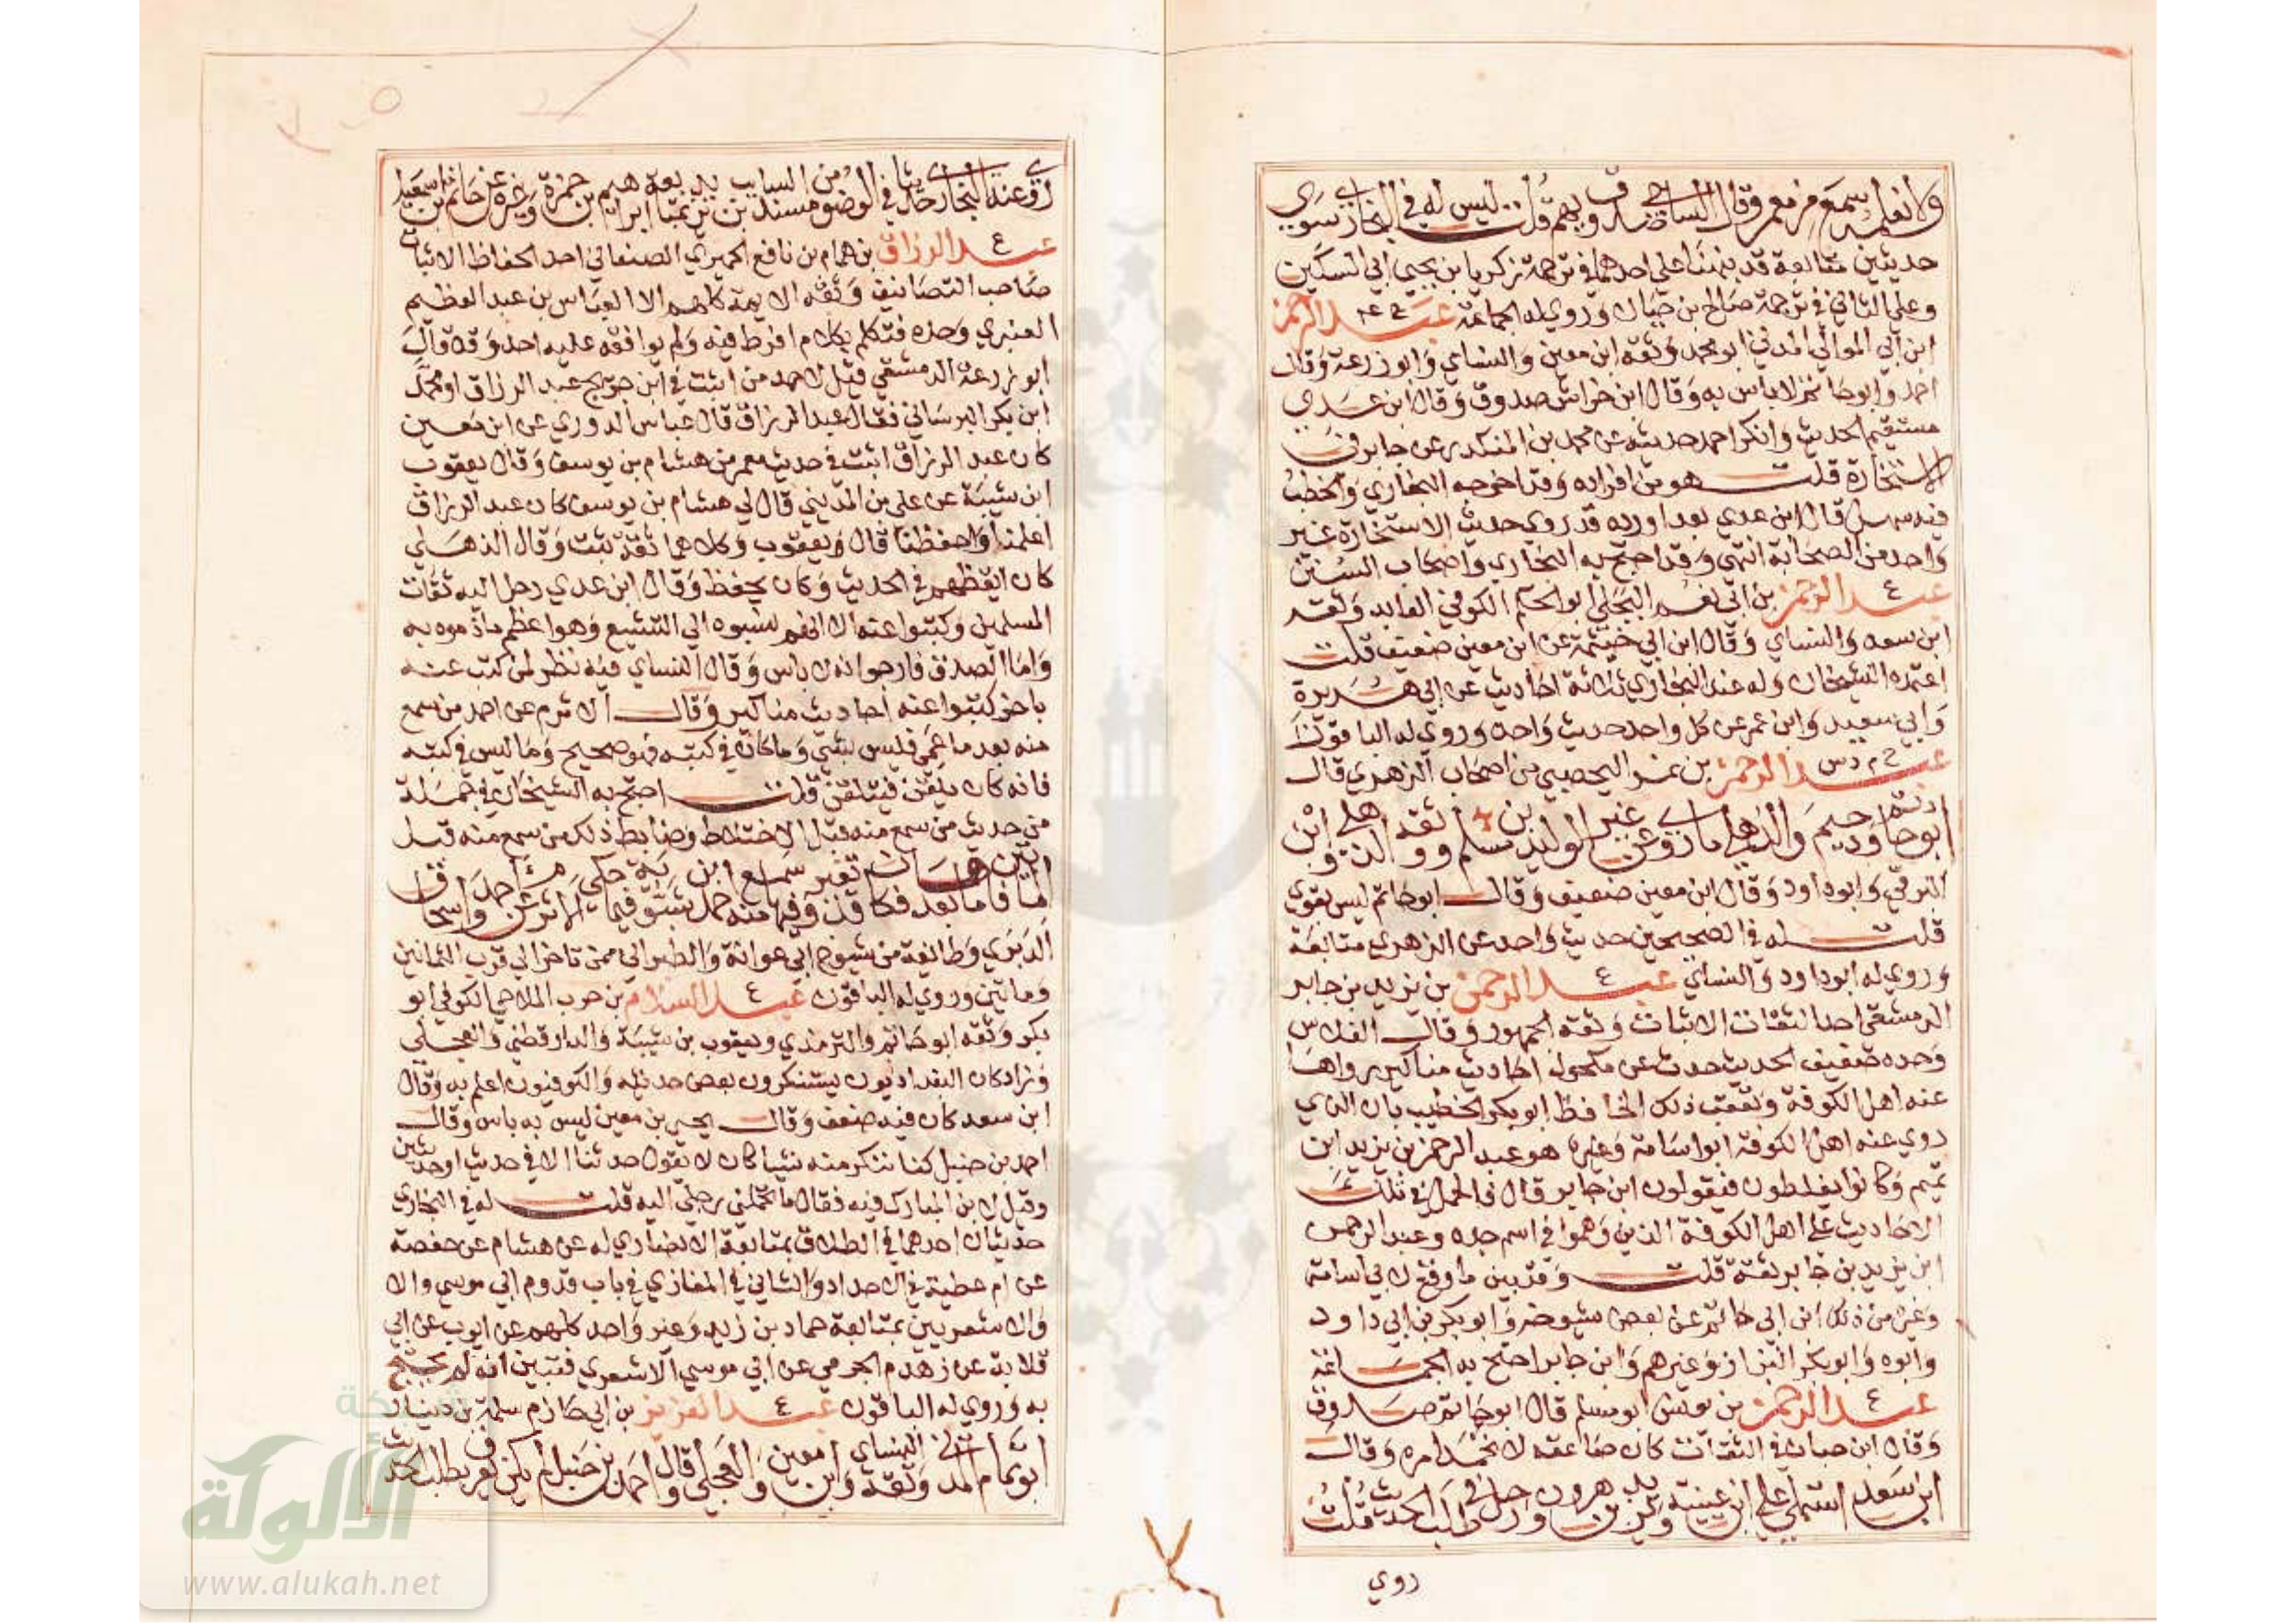 ولا نعلمه سمع من معمر وقال الساجي صدوق يهم قلت ليس له في البخاري سوى
حديثين متابعة قد نبهنا على احدهما في ترجمة زكريا بن يحيى ابي السكين
وعلى الثاني في ترجمة صالح بن حيان وروي له الجماعة خ ع عبد الرحمن
ابن ابي الموالي المدني ابو محمد وثقه ابن معين والنساي وابو زرعة وقال
احمد وابو حاتم لا باس به وقال ابن خراش صدوق وقال ابن عدي
مستقيم الحديث وانكر احمد حديثه عن محمد بن المنكدر عن جابر في
الاستخارة قلت هو من افراده وقد اخرجه البخاري والخطب
فيه سهل قال ابن عدي بعد اورده قد روي حديث الاستخارة غير
واحد من الصحابة انتهى وقد احتج به البخاري واصحاب السنن
ع عبد الرحمن بن ابي نعم البجلي ابو الحكم الكوفي العابد وثقه
ابن سعد والنساي وقال ابن ابي خيثمة عن ابن معين ضعيف قلت
اعتمده الشيخان وله عند البخاري ثلاثة احاديث عن ابي هريرة
وابي سعيد وابن عمر عن كل واحد حديث واحد وروي له الباقون
خ م د س عبد الرحمن بن نمر اليحصبي من اصحاب الزهري قال
ابو حاتم ودحيم والذهلي ما روى عنه غير الوليد بن مسلم ووثقه الذهلي وابن
البرقي وابو داود وقال ابن معين ضعيف وقال ابو حاتم ليس بقوي
قلت له في الصحيحين حديث واحد عن الزهري متابعة
وروي له ابو داود والنساي ع عبد الرحمن بن يزيد بن جابر
الدمشقي احد الثقات الاثبات وثقه الجمهور وقال الفلاس
وحده ضعيف الحديث حدث عن مكحول احاديث مناكير رواها
عنه اهل الكوفة وتعقب ذلك الحافظ ابو بكر الخطيب بان الذي
روي عنه اهل الكوفة ابو اسامة وغيره هو عبد الرحمن بن يزيد ابن
تميم وكانوا يغلطون فيقولون ابن جابر قال فالحمل في تلك
الاحاديث على اهل الكوفة الذين وهموا في اسم جده وعبد الرحمن
ابن يزيد بن جابر ثقة قلت وقد بين ما وقع لابي اسامة
وغيره من ذلك ابن ابي حاتم عن بعض شيوخه وابو بكر بن ابي داود
وابوه وابو بكر البزار وغيرهم وابن جابر احتج به الجماعة
ع عبد الرحمن بن يونس ابو مسلم قال ابو حاتم صدوق
وقال ابن حبان في الثقات كان صاعقة لا يحمد امره وقال
ابن سعد استملى على ابن عيينة ويزيد بن هرون ورحل في طلب الحديث قلت
روي
روى عنه البخاري حديثا في الوضوء من مسند السايب بن يزيد بمتابعة ابراهيم بن حمزة وغيره عن حاتم بن اسمعيل
ع عبد الرزاق بن همام بن نافع الحميري الصنعاني احد الحفاظ الاثبات
صاحب التصانيف وثقه الايمة كلهم الا العباس بن عبد العظيم
العنبري وحده فتكلم بكلام افرط فيه ولم يوافقه عليه احد وقد قال
ابو زرعة الدمشقي قيل لاحمد من اثبت في ابن جريج عبد الرزاق او محمد
ابن بكر البرساني فقال عبد الرزاق قال عباس الدوري عن ابن معين
كان عبد الرزاق اثبت في حديث معمر من هشام بن يوسف وقال يعقوب
ابن شيبة عن علي بن المديني قال لي هشام بن يوسف كان عبد الرزاق
اعلمنا واحفظنا قال يعقوب وكلاهما ثقة ثبت وقال الذهلي
كان ايقظهم في الحديث وكان يحفظ وقال ابن عدي رحل اليه ثقات
المسلمين وكتبوا عنه الا انهم نسبوه الى التشيع وهو اعظم ما ذموه به
واما الصدق فارجوا انه لا باس وقال النساي فيه نظر لمن كتب عنه
باخره كتبوا عنه احاديث مناكير وقال الاثرم عن احمد من سمع
منه بعد ما عمي فليس بشي وما كان في كتبه فهو صحيح وما ليس في كتبه
فانه كان يلقن فيتلقن قلت احتج به الشيخان في جملة
من حديث من سمع منه قبل الاختلاط وضابط ذلك من سمع منه قبل
المايتين فاما بعدها فكان قد تغير وفيها سمع منه احمد بن شبويه فيما حكى الاثرم عن احمد واسحاق
الدبري وطائفة من شيوخ ابي عوانة والطبراني ممن تاخر الى قرب الثمانين
ومايتين وروي له الباقون ع عبد السلام بن حرب الملاحي الكوفي ابو
بكر وثقه ابو حاتم والترمذي ويعقوب بن شيبة والدارقطني والعجلي
وزاد كان البغداديون يستنكرون بعض حديثه والكوفيون اعلم به وقال
ابن سعد كان فيه ضعف وقال يحيى بن معين ليس به باس وقال
احمد بن حنبل كنا ننكر منه شيا كان لا يقول حدثنا الا في حديث او حديثين
وقيل لابن المبارك فيه فقال ما تحملني رجلي اليه قلت له في البخاري
حديثان احدهما في الطلاق بمتابعة الانصاري له عن هشام عن حفصة
عن ام عطية في الاحداد والثاني في المغازي في باب قدوم ابي موسى والا
والاشعريين بمتابعة حماد بن زيد وغير واحد كلهم عن ايوب عن ابي
قلابة عن زهدم الجرمي عن ابي موسى الاشعري فتبين انه لم يحتج
به وروي له الباقون ع عبد العزيز بن ابي حازم سلمة بن دينار
ابو تمام المدني وثقه النساي وابن معين والعجلي وقال احمد بن حنبل لم يكن يعرف بطلب الحديث
شبكة
الألوكة
www.alukah.net